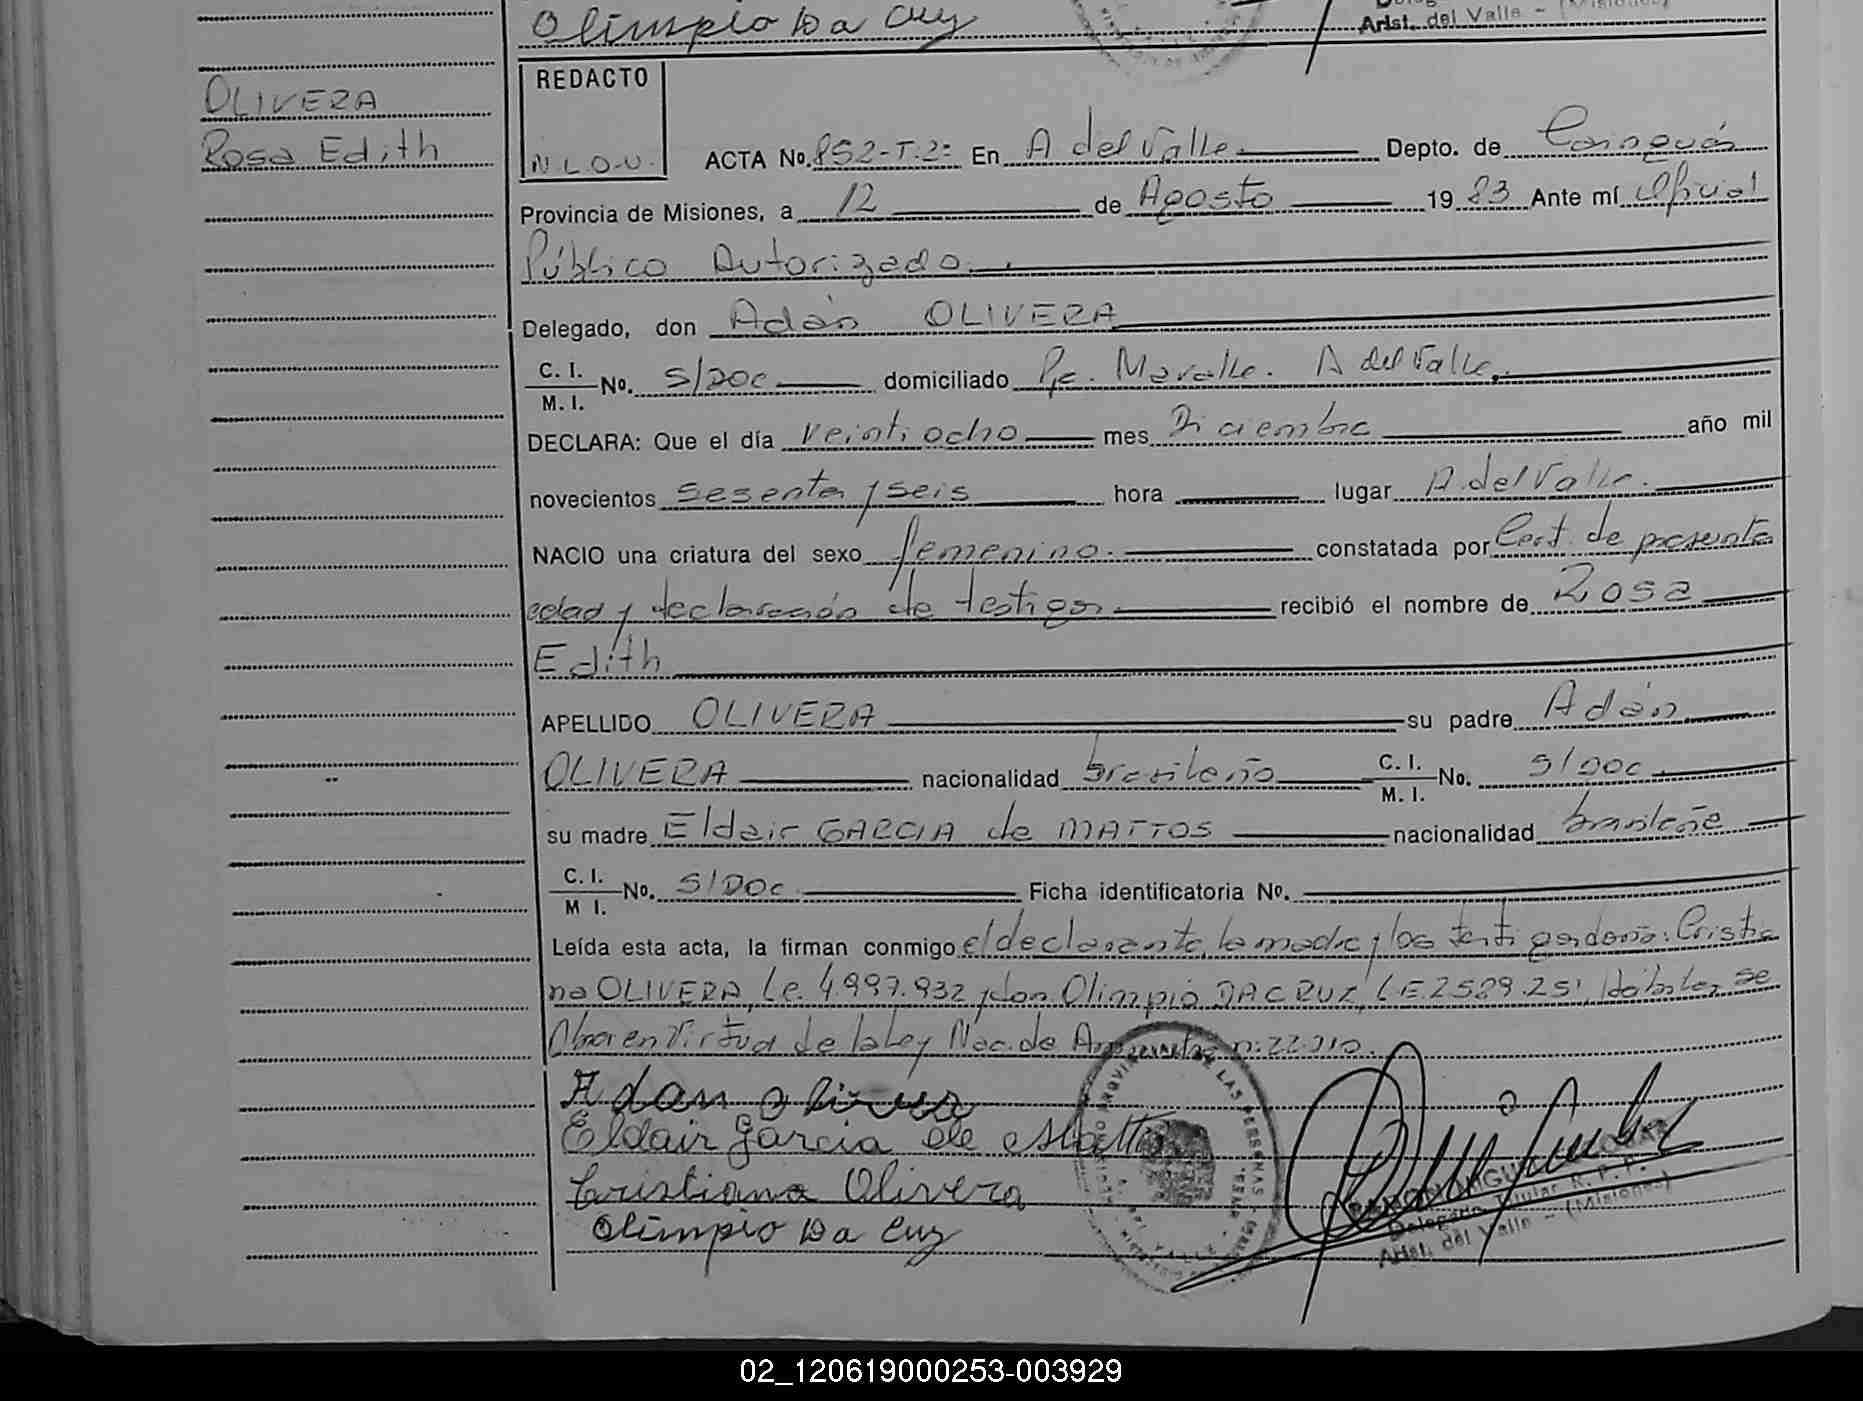 Olimpio Da Cuz
Arist. del Valle - (Misiones)
OLIVERA
Rosa Edith
REDACTO
N L.O.U.
ACTA No. 852-T.2: En A del Valle. Depto. de Cainguás
Provincia de Misiones, a 12 de Agosto 19 83 Ante mí Oficial
Público Autorizado.
Delegado, don Adán OLIVERA
C. I.
M. I. No. S/DOC domiciliado Pje. A del Valle.
DECLARA: Que el día veintiocho mes Diciembre año mil
novecientos sesenta y seis hora lugar A. del Valle.
NACIO una criatura del sexo femenino. constatada por Cert. de presunta
edad y declaración de testigos recibió el nombre de Rosa
Edith
APELLIDO OLIVERA su padre Adán
OLIVERA nacionalidad brasileño C. I.
M. I. No. S/DOC
su madre Eldair GARCIA de MATTOS nacionalidad brasileñe
C. I.
M I. No. S/DOC. Ficha identificatoria No.
Leída esta acta, la firman conmigo el declarante, la madre y los testigos doña: Cristia
na OLIVERA, L.e. 4.997.932 y don Olimpio DACRUZ, L.E. 2589.251, se
Obra en Virtud de la Ley Nac. de n: 22.
Adan Olivera
Eldair Garcia de Mattos
Cristiana Olivera
Olimpio Da Cuz
DE LAS PERSONAS
Delegado Titular R. P. P.
Arist. del Valle - (Misiones)
02_120619000253-003929